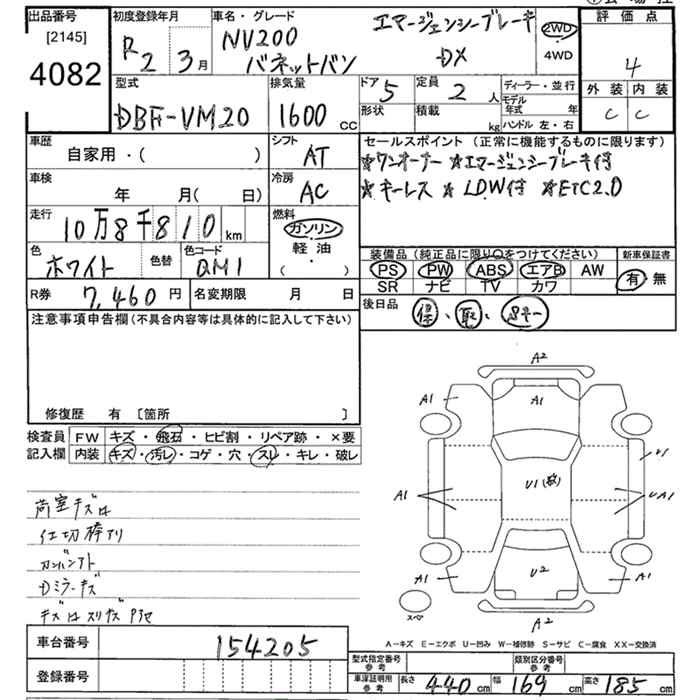 出品番号
[2145]
4082
初度登録年月
R2 3月
車名・グレード
NV200
バネットバン
エマージェンシーブレーキ
DX
2WD
4WD
評価点
4
外装 内装
C C
型式
DBF-VM20
排気量
1600 CC
ドア 5
形状
定員 2 人
積載 kg
ディーラー・並行
モデル年式 年
ハンドル 左・右
車歴
自家用・( )
シフト
AT
車検
年 月( 日)
冷房
AC
走行
10万8千810 km
燃料
ガソリン
軽油
( )
色
ホワイト 色替
色コード
QM1
R券 7,460 円
名変期限 月 日
セールスポイント (正常に機能するものに限ります)
★ワンオーナー ★エマージェンシーブレーキ付
★キーレス ★LDW付 ★ETC2.0
装備品 (純正品に限り○をつけてください)
新車保証書
PS PW ABS エアB AW
SR ナビ TV カワ
有 無
後日品 保、取、
注意事項申告欄 (不具合内容等は具体的に記入して下さい)
修復歴 有 [箇所 ]
検査員
記入欄
FW キズ・飛石・ヒビ割・リペア跡・×要
内装 キズ・汚レ・コゲ・穴・スレ・キレ・破レ
荷室キズ
仕切棒アリ
Dミラーキズ
A2
A1 A1 A1
U1
A1 U1 UA1
A1 U2 A1
スペア A2
A=キズ E=エクボ U=凹み W=補修跡 S=サビ C=腐食 XX=交換済
車台番号 154205
登録番号
型式指定番号 参考
類別区分番号 参考
車庫証明用 参考 長さ 440 cm 幅 169 cm 高さ 185 cm